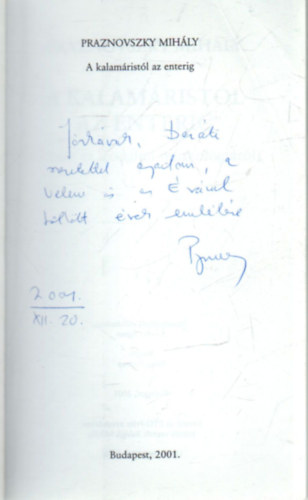 PRAZNOVSZKY MIHÁLY
A kalamáristól az enterig
baráti
szeretettel ajánlom, a
velem és az Évával
töltött évek emlékére
2001.
XII. 20.
Budapest, 2001.